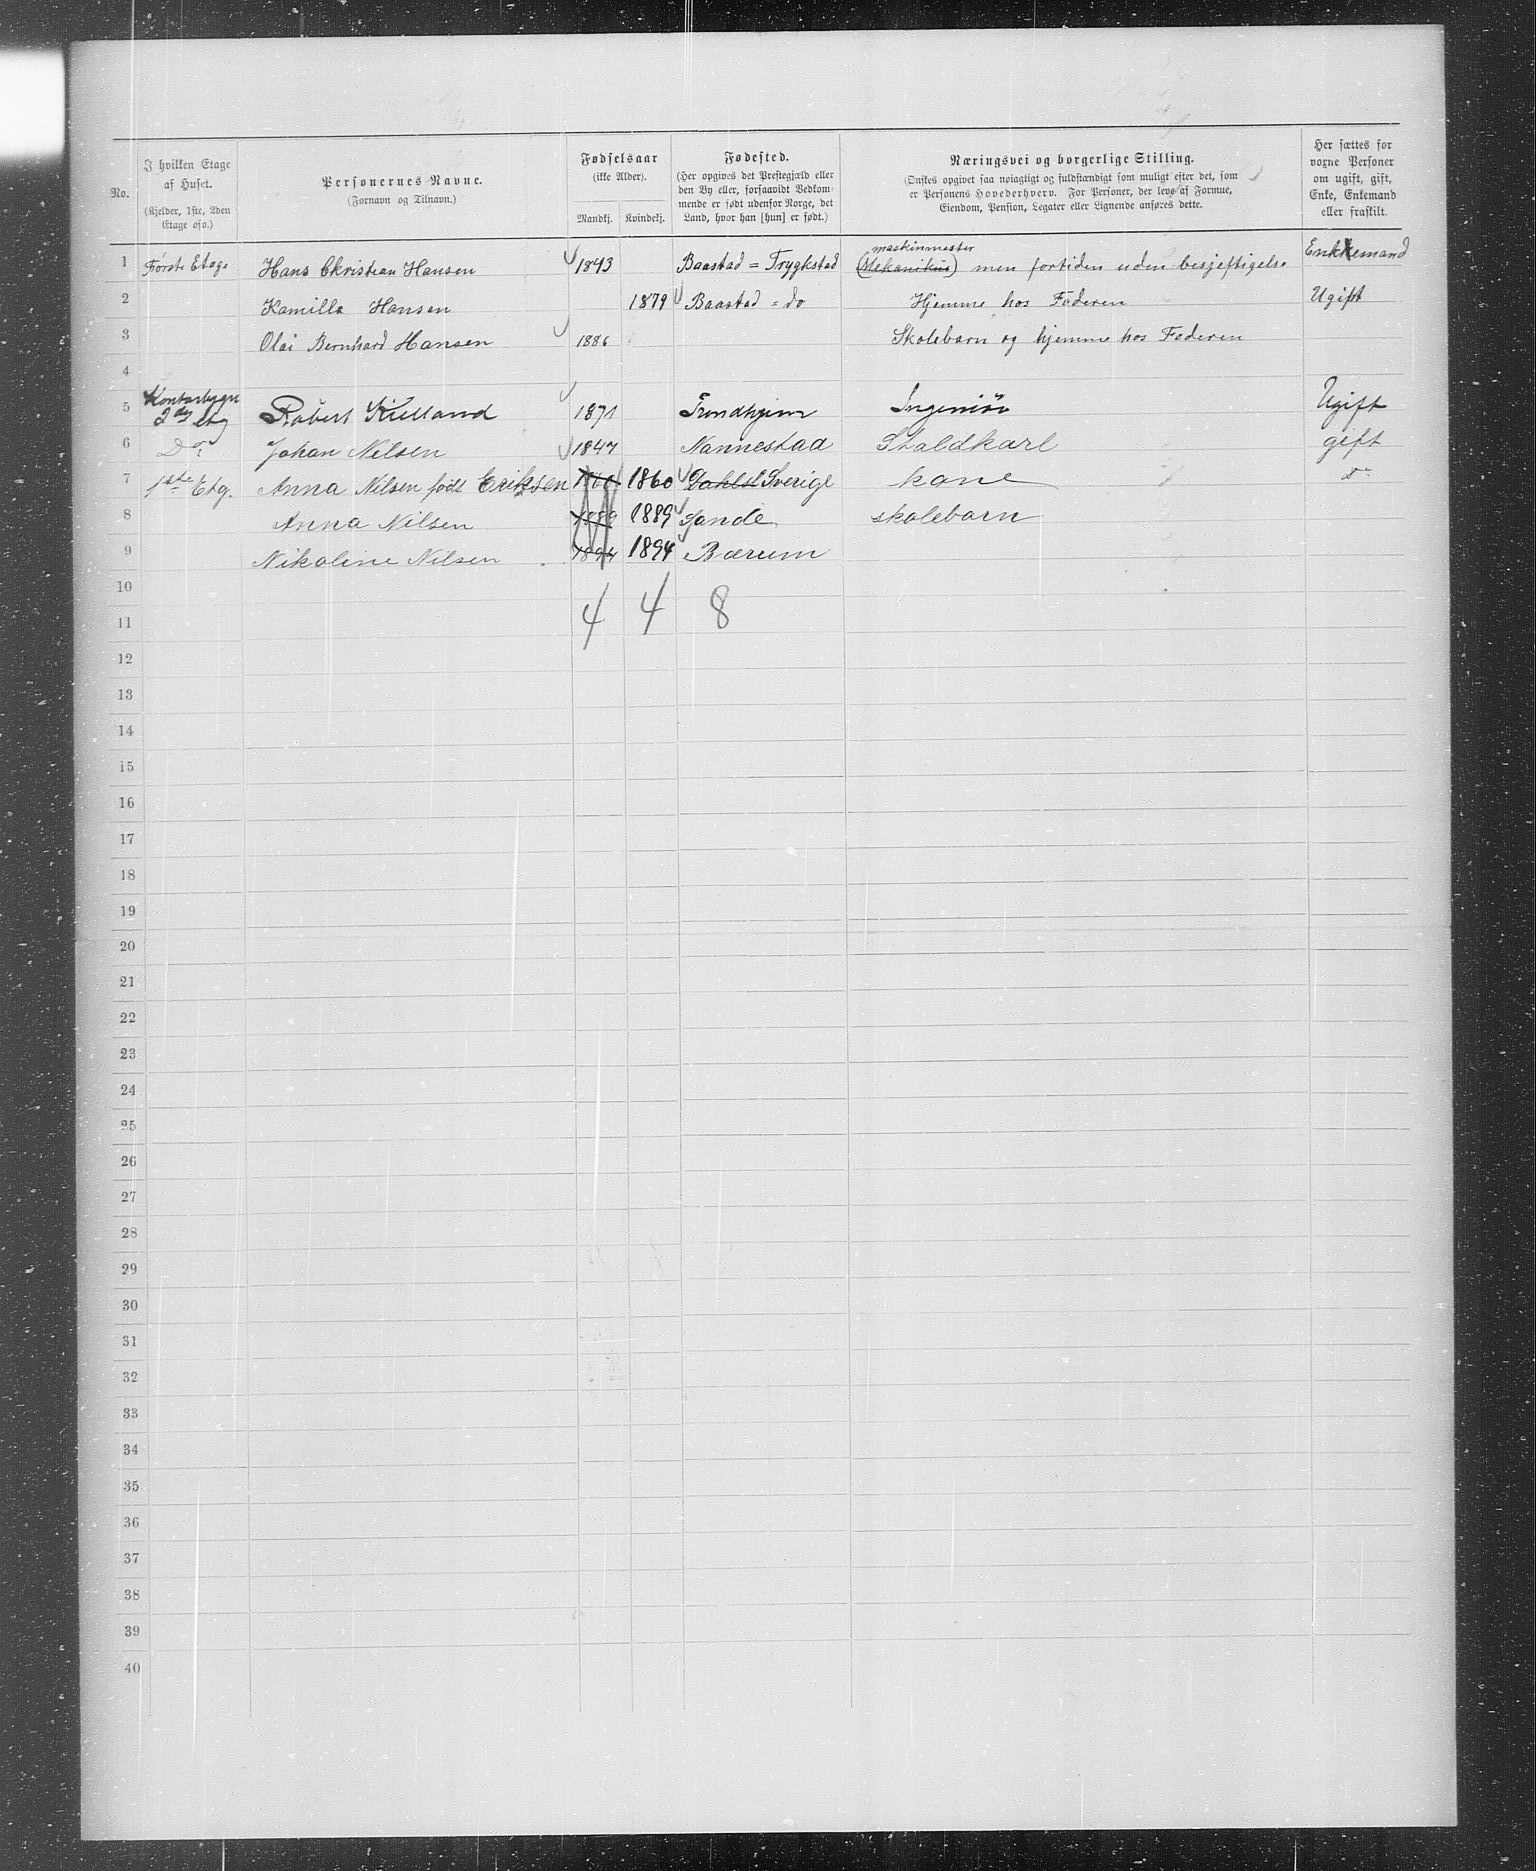 No.
I hvilken Etage af Huset. (Kjelder, 1ste, 2den Etage osv.)
Personernes Navne. (Fornavn og Tilnavn.)
Fødselsaar (ikke Alder).
Mandkj. Kvindekj.
Fødested. (Her opgives det Præstegjæld eller den By eller, forsaavidt Vedkommende er født udenfor Norge, det Land, hvor han [hun] er født.)
Næringsvei og borgerlige Stilling. (Ønskes opgivet saa nøiagtigt og fuldstændigt som muligt efter det, som er Personens Hovederhverv. For Personer, der leve af Formue, Eiendom, Pension, Legater eller Lignende anføres dette.
Her sættes for voxne Personer om ugift, gift, Enke, Enkemand eller fraskilt.
maskinmester
1 Første Etage Hans Christian Hansen 1843 Baastad = Trygkstad (Mekanikus) men fortiden uden besjeftigelse Enkemand
2 Kamilla Hansen 1879 Baastad = do Hjemme hos Faderen Ugift
3 Olai Bernhard Hansen 1886 Skolebarn og hjemme hos Faderen
4
Kontorbygn
5 2den Etg Robert Kielland 1871 Trondhjem Ingeniør Ugift
6 Do Johan Nilsen 1847 Nannestad Staldkarl gift
7 1ste Etg. Anna Nilsen født Eriksen 1860 1860 Dahlsl Sverige kone do
8 Anna Nilsen 1889 1889 Sande skolebarn
9 Nikoline Nilsen 1894 1894 Bærum
10
4 4 8
11
12
13
14
15
16
17
18
19
20
21
22
23
24
25
26
27
28
29
30
31
32
33
34
35
36
37
38
39
40